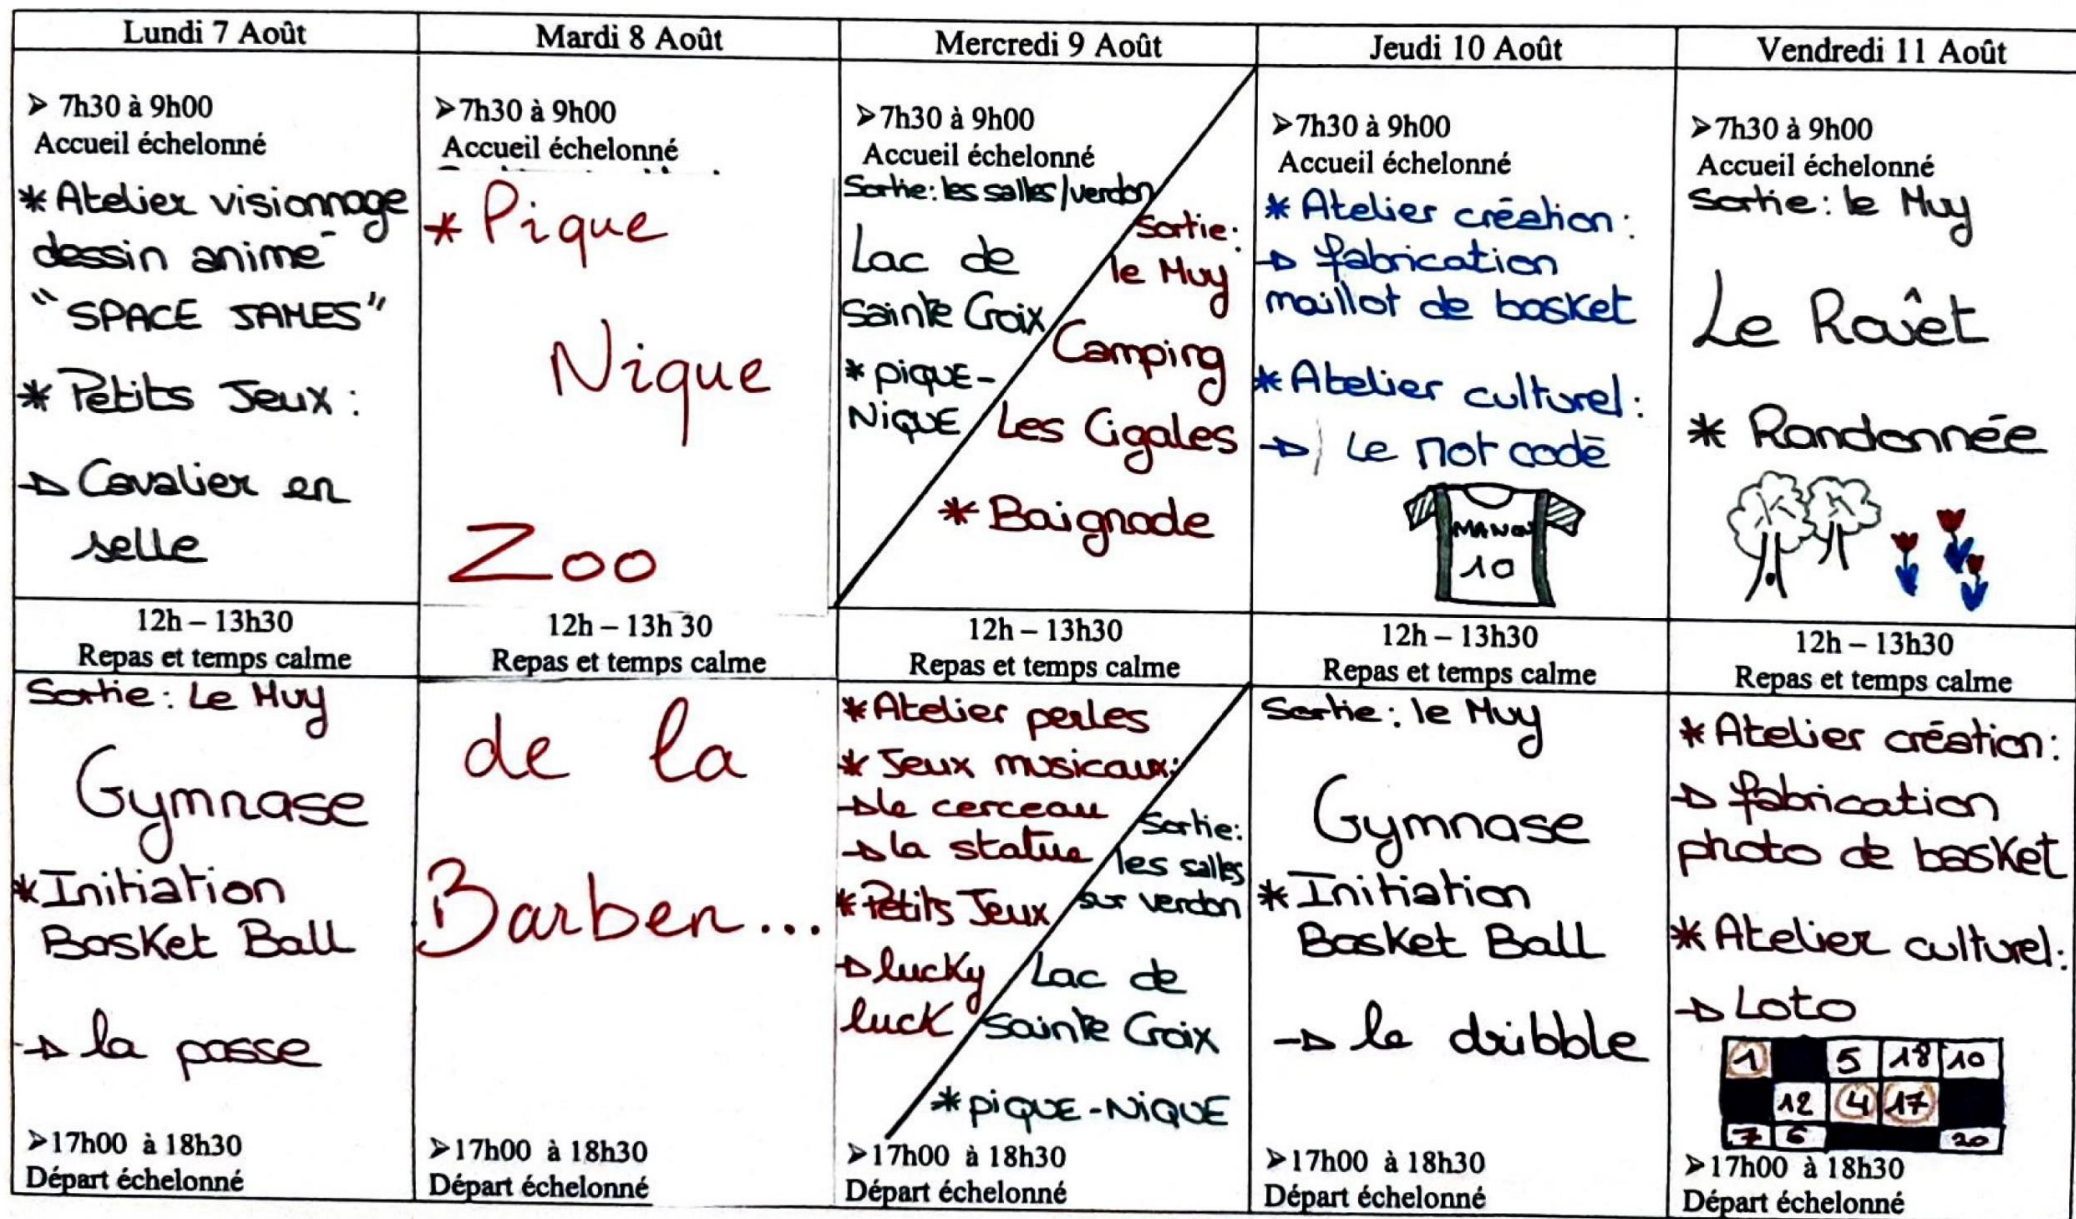 Lundi 7 Août
Mardi 8 Août
Mercredi 9 Août
Jeudi 10 Août
Vendredi 11 Août
➢ 7h30 à 9h00
Accueil échelonné
* Atelier visionnage
dessin animé
"SPACE JAMES"
* Petits Jeux :
→ Cavalier en
selle
➢7h30 à 9h00
Accueil échelonné
* Pique
Nique
Zoo
➢7h30 à 9h00
Accueil échelonné
Sortie: les salles/verdon
Lac de
Sainte Croix
* PIQUE-
NIQUE
Sortie:
le Muy
Camping
Les Cigales
* Baignade
➢7h30 à 9h00
Accueil échelonné
* Atelier création :
→ fabrication
maillot de basket
* Atelier culturel :
→ Le Mot codé
MANON
10
➢7h30 à 9h00
Accueil échelonné
Sortie: le Muy
Le Rouët
* Randonnée
12h – 13h30
Repas et temps calme
12h – 13h 30
Repas et temps calme
12h – 13h30
Repas et temps calme
12h – 13h30
Repas et temps calme
12h – 13h30
Repas et temps calme
Sortie: Le Muy
Gymnase
* Initiation
Basket Ball
→ la passe
➢17h00 à 18h30
Départ échelonné
de la
Barben...
➢17h00 à 18h30
Départ échelonné
* Atelier perles
* Jeux musicaux:
→ le cerceau
→ la statue
* Petits Jeux
→ lucky
luck
Sortie:
les salles
sur verdon
Lac de
Sainte Croix
* PIQUE-NIQUE
➢17h00 à 18h30
Départ échelonné
Sortie: le Muy
Gymnase
* Initiation
Basket Ball
→ le dribble
➢17h00 à 18h30
Départ échelonné
* Atelier création :
→ fabrication
photo de basket
* Atelier culturel :
→ Loto
1 5 18 10
12 4 17
7 6 20
➢17h00 à 18h30
Départ échelonné